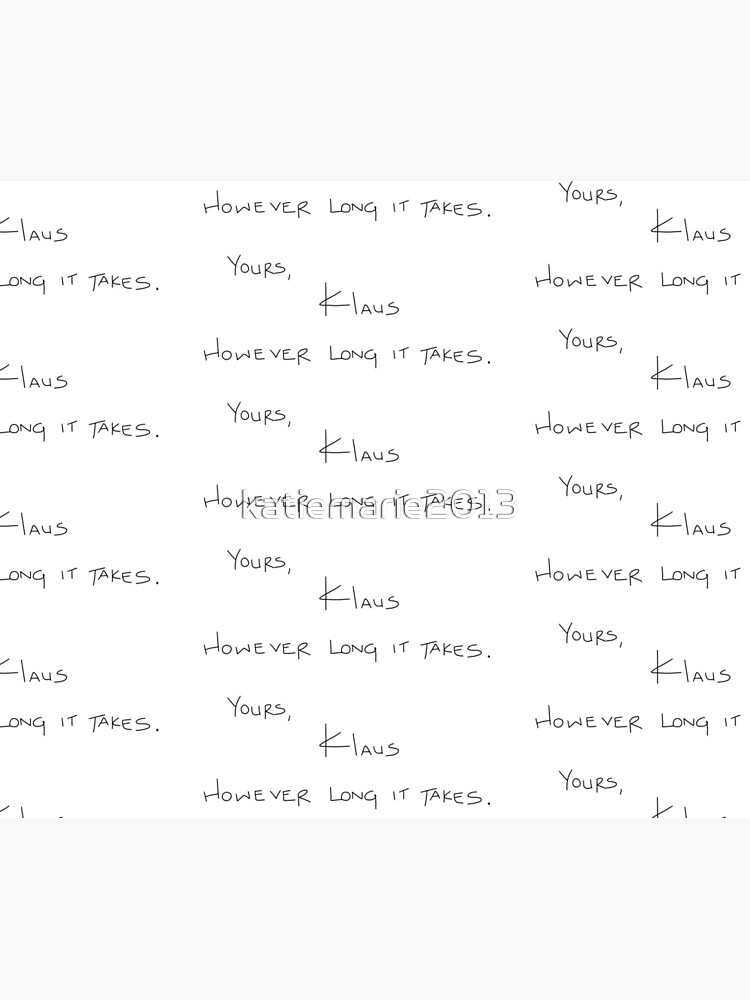 Klaus
Long it takes.
Klaus
Long it takes.
Klaus
Long it takes.
Klaus
Long it takes.
However Long it takes.
Yours,
Klaus
However Long it takes.
Yours,
Klaus
However Long it takes.
katiemarie2013
Yours,
Klaus
However Long it takes.
Yours,
Klaus
However Long it takes.
Yours,
Klaus
However Long it
Yours,
Klaus
However Long it
Yours,
Klaus
However Long it
Yours,
Klaus
However Long it
Yours,